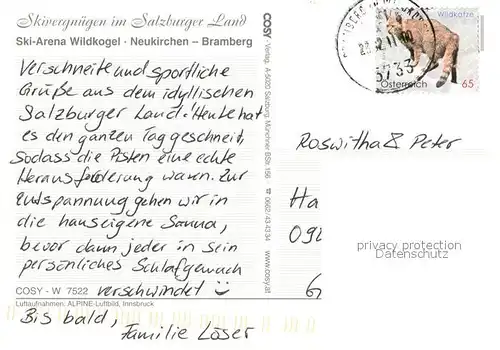 Skivergnügen im Salzburger Land
Ski-Arena Wildkogel · Neukirchen – Bramberg
Verschneite und sportliche
Grüße aus dem idyllischen
Salzburger Land! Heute hat
es den ganzen Tag geschneit,
sodass die Pisten eine echte
Herausforderung waren. Zur
Entspannung gehen wir in
die hauseigene Sauna,
bevor dann jeder in sein
persönliches Schlafgemach
verschwindet
COSY - W 7522
Luftaufnahmen: ALPINE-Luftbild, Innsbruck
Bis bald,
Familie Löser
COSY - Verlag, A-5020 Salzburg, Münchner BStr. 156 ☎ 0662/43 42 34 www.cosy.at
Wildkatze
5733
Österreich 65
Roswitha & Peter
Ha
privacy protection
Datenschutz